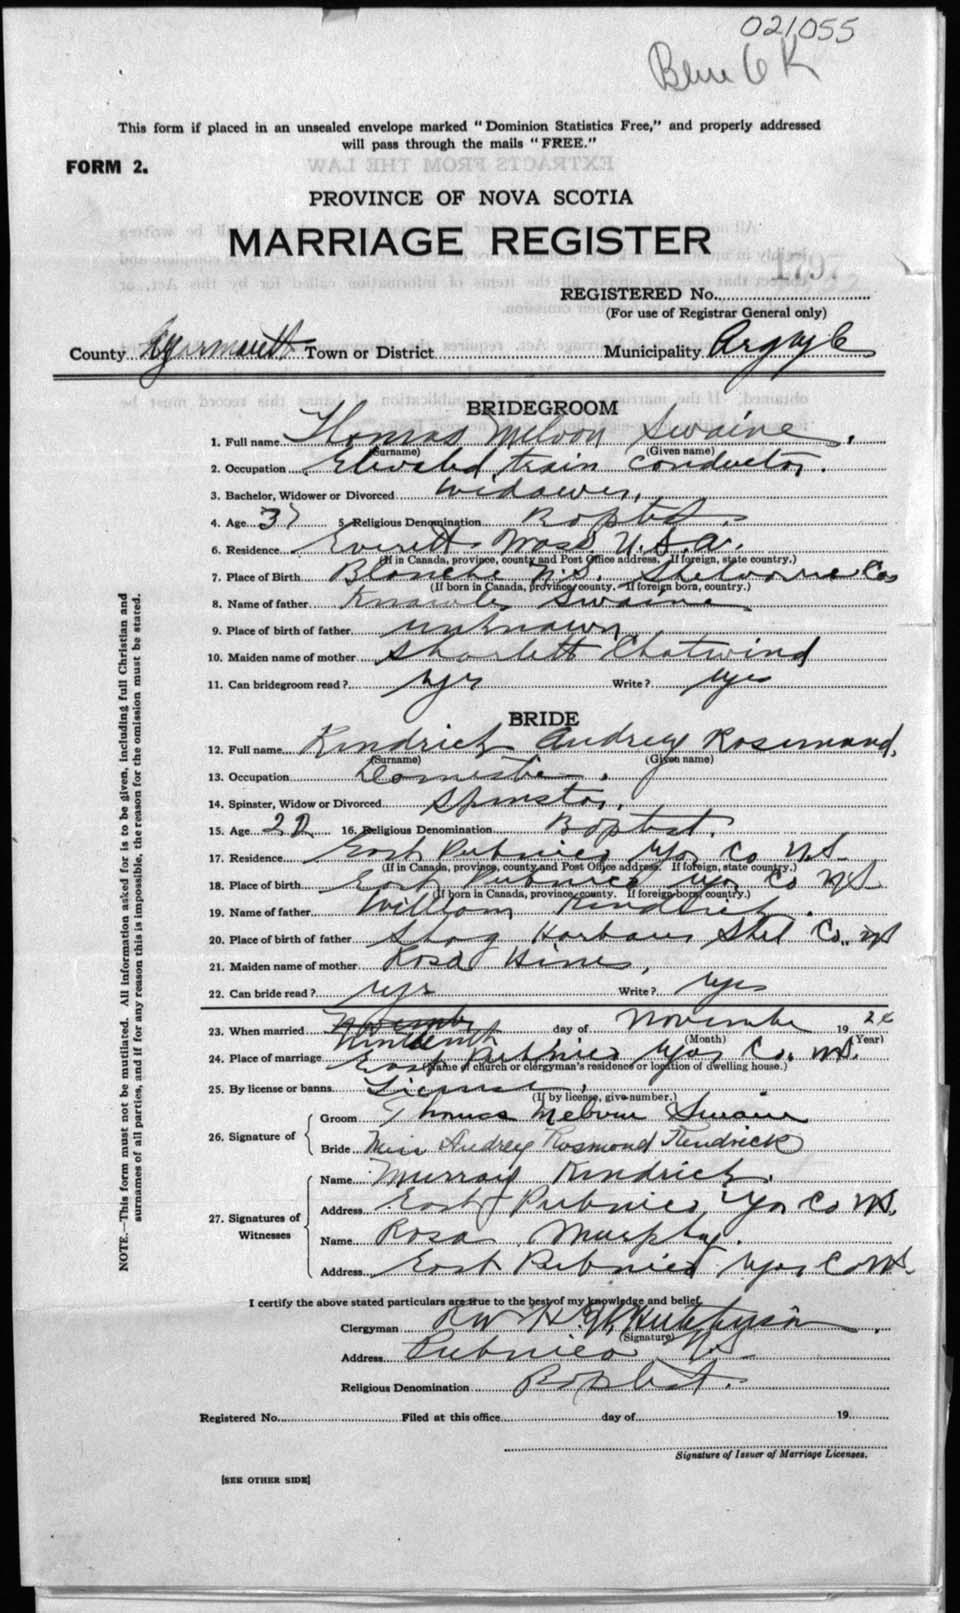 021055
This form if placed in an unsealed envelope marked "Dominion Statistics Free," and properly addressed
will pass through the mails "FREE."
FORM 2.
PROVINCE OF NOVA SCOTIA
MARRIAGE REGISTER
1797
REGISTERED No.
(For use of Registrar General only)
County Yarmouth Town or District Municipality Argyle
BRIDEGROOM
1. Full name Thomas Melvon Swaine
(Surname) (Given name)
2. Occupation Elevated train conductor.
3. Bachelor, Widower or Divorced widower,
4. Age 37 5. Religious Denomination Baptist.
6. Residence Everett Mass. U.S.A.
(If in Canada, province, county and Post Office address. If foreign, state country.)
7. Place of Birth Blanche N.S. Shelburne Co
(If born in Canada, province, county. If foreign born, country.)
8. Name of father Knowles Swaine
9. Place of birth of father unknown
10. Maiden name of mother Sharlett Chatwind
11. Can bridegroom read? yes Write? yes
BRIDE
12. Full name Kindrick Audrey Rosemond,
(Surname) (Given name)
13. Occupation Domestic.
14. Spinster, Widow or Divorced Spinster.
15. Age 22 16. Religious Denomination Baptist.
17. Residence East Pubnico Yar Co N.S.
(If in Canada, province, county and Post Office address. If foreign, state country.)
18. Place of birth East Pubnico Yar Co N.S
(If born in Canada, province county. If foreign-born, country.)
19. Name of father William Kindrick.
20. Place of birth of father Shag Harbour Shel Co. NS
21. Maiden name of mother Rosa Hines,
22. Can bride read? yes Write? yes
23. When married Ninteenth day of November 1924
(Month) (Year)
24. Place of marriage East Pubnico Yar Co. N.S.
(Name of church or clergyman's residence or location of dwelling house.)
25. By license or banns License,
(If by license, give number.)
26. Signature of Groom Thomas Melvin Swaine
Bride Miss Audrey Rosmond Kendrick
27. Signatures of Witnesses Name Murray Kindrick.
Address East Pubnico, Yar Co N.S.
Name Rosa Murphy.
Address East Pubnico Yar Co N.S.
I certify the above stated particulars are true to the best of my knowledge and belief.
Clergyman Rev H. Hutchinson
(Signature)
Address Pubnico N.S
Religious Denomination Baptist.
Registered No. Filed at this office day of 19
Signature of Issuer of Marriage Licenses.
[SEE OTHER SIDE]
NOTE.—This form must not be mutilated. All information asked for is to be given, including full Christian and
surnames of all parties, and if for any reason this is impossible, the reason for the omission must be stated.